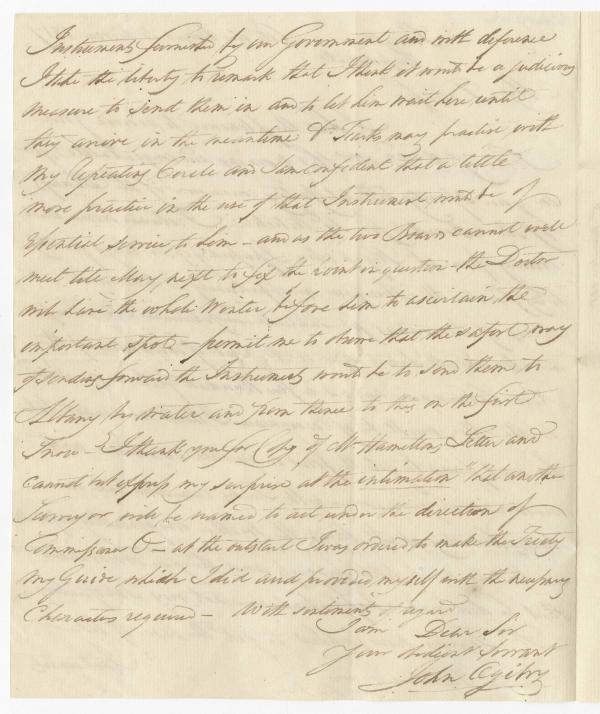 Instruments furnished by our Government and with deference
I take the liberty to remark that I think it would be a judicious
measure to send them in and to let him wait here until
they arrive, in the meantime Dr Tiarks may practice with
my Repeating Circle and I am confident that a little
more practice in the use of that Instrument would be of
Essential service to him – and as the two Boards cannot well
meet till May next to fix the point in question – the Doctor
will have the whole Winter before him to ascertain the
important spot – permit me to observe that the safest way
of sending forward the Instruments would be to send them to
Albany by Water and from thence to this on the first
Snow – I thank you for Copy of Mr Hamilton's Letter and
cannot but express my surprise at the intimation "that another
Surveyor will be named to act under the direction of
Commissioner O – at the outstart I was ordered to make the Treaty
my Guide which I did and provided myself with the necessary
Characters required – With sentiments of regard
I am Dear Sir
Your obedient Servant
John Ogilvy